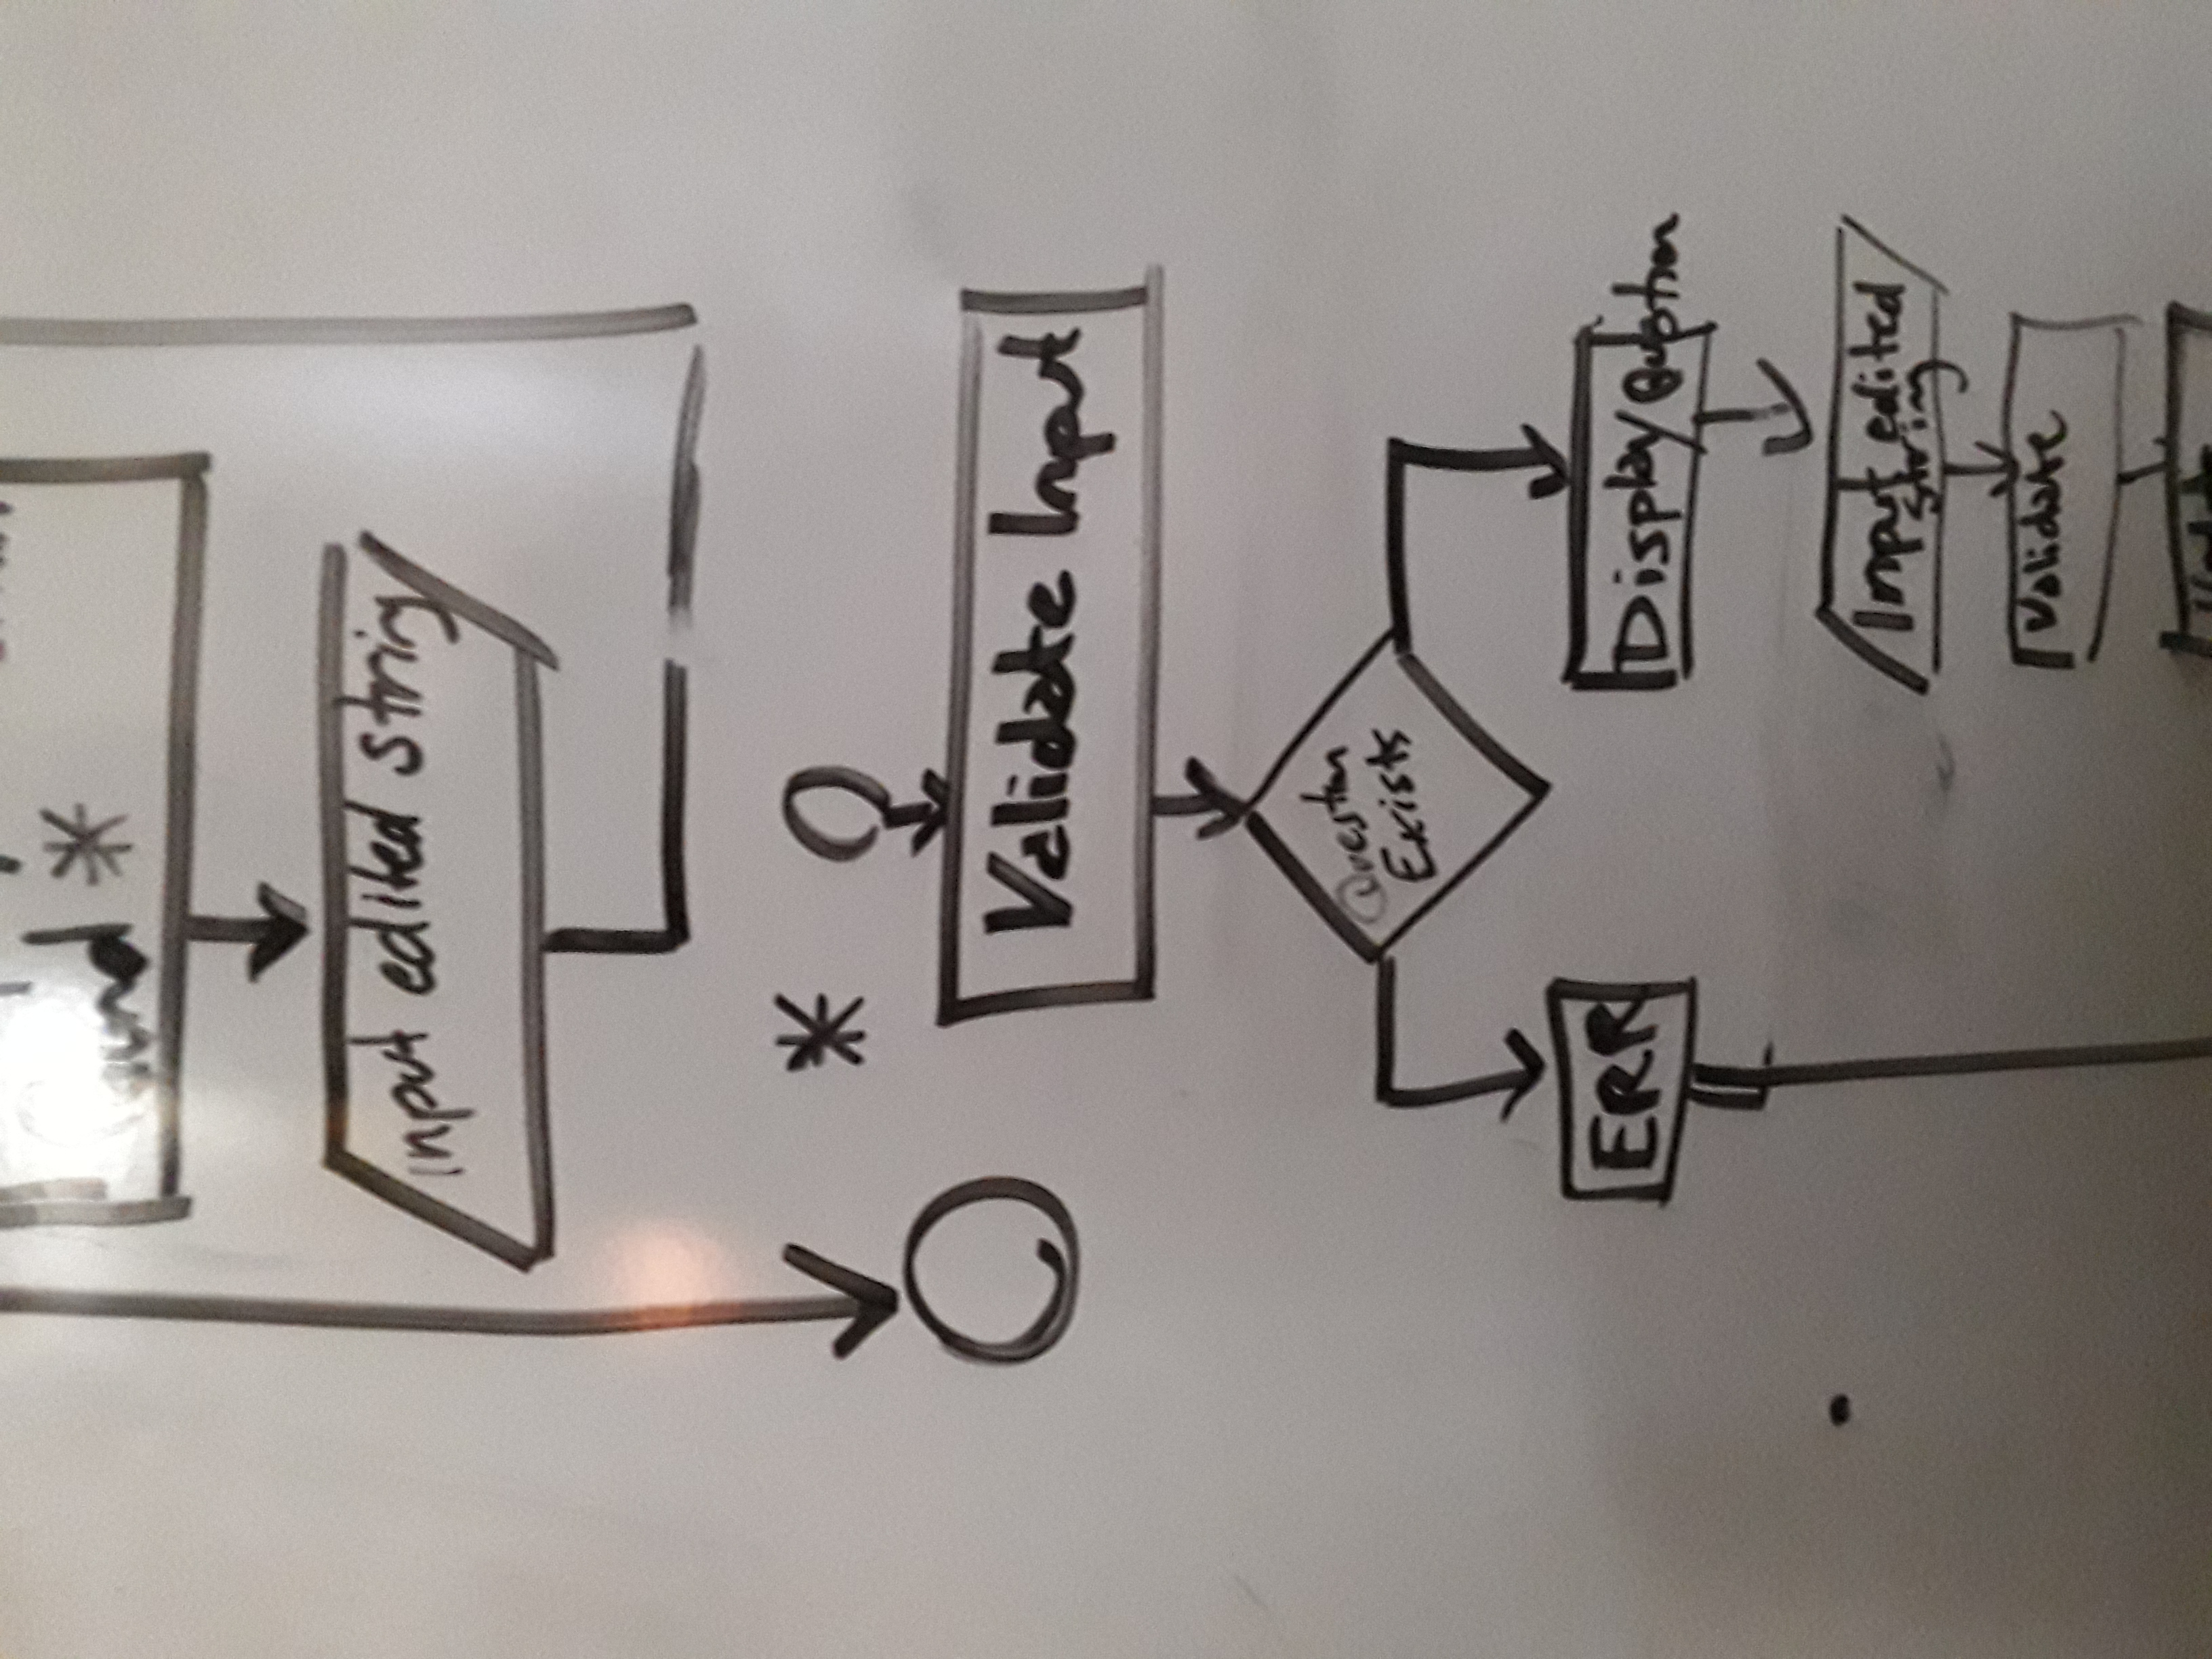 *
Input edited string
*
Validate Input
Question
Exists
ERR
Display Question
Input edited
string
Validate